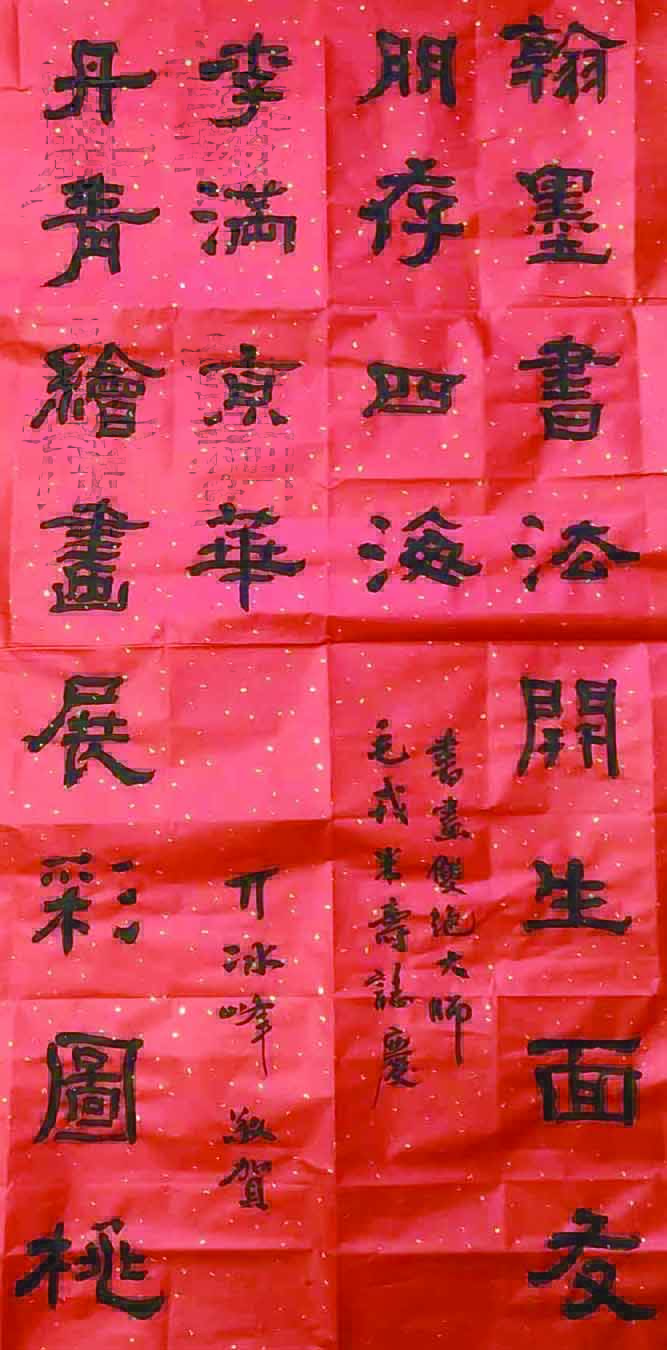 翰墨書法開生面友
朋存四海
書畫雙絶大師
毛戎米壽誌慶
丹青繪畫展彩圖桃
李滿京華
丌冰峰 敬賀